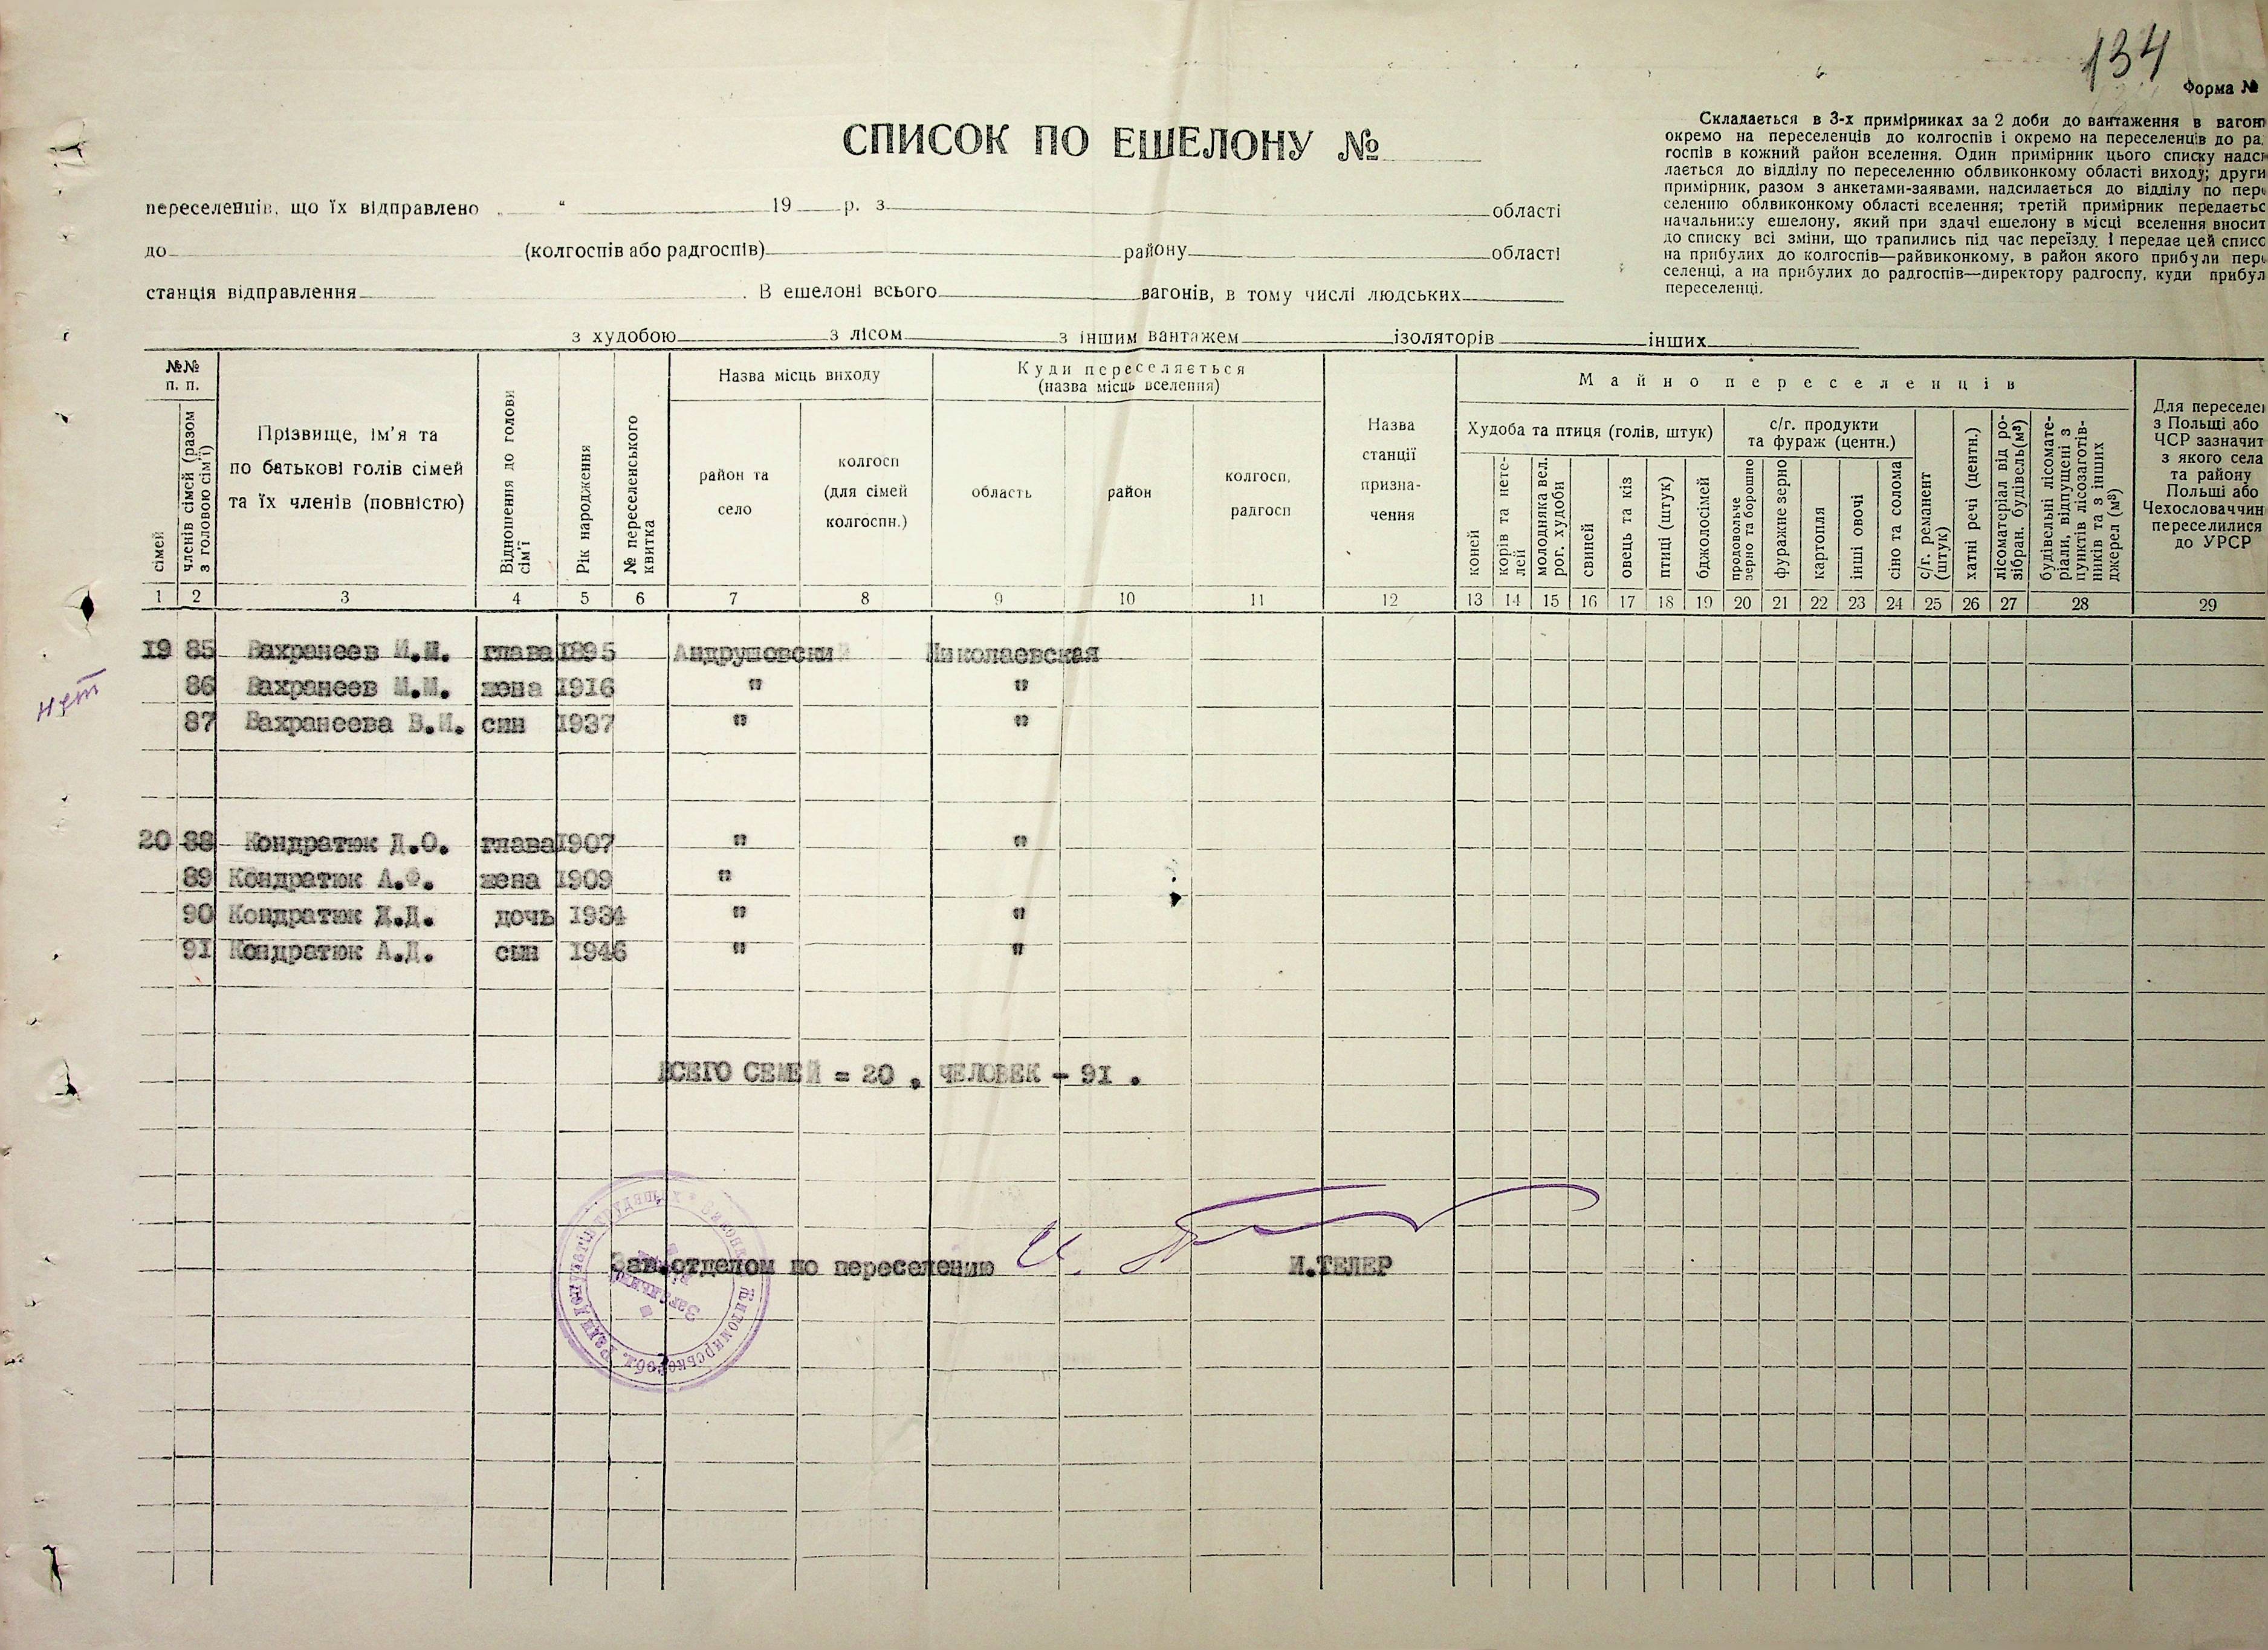 134
Форма №
СПИСОК ПО ЕШЕЛОНУ №
Складається в 3-х примірниках за 2 доби до вантаження в вагон
окремо на переселенців до колгоспів і окремо на переселенців до ра
госпів в кожний район вселення. Один примірник цього списку надси
лається до відділу по переселенню облвиконкому області виходу; други
примірник, разом з анкетами-заявами, надсилається до відділу по пере
селенню облвиконкому області вселення; третій примірник передаєтьс
начальнику ешелону, який при здачі ешелону в місці вселення вносит
до списку всі зміни, що трапились під час переїзду, і передає цей списо
на прибулих до колгоспів—райвиконкому, в район якого прибули пере
селенці, а на прибулих до радгоспів—директору радгоспу, куди прибул
переселенці.
переселенців, що їх відправлено „ “ 19 р. з області
до (колгоспів або радгоспів) району області
станція відправлення . В ешелоні всього вагонів, в тому числі людських
з худобою з лісом з іншим вантажем ізоляторів інших
№№ п. п.
сімей
членів сімей (разом з головою сім'ї)
Прізвище, ім'я та по батькові голів сімей та їх членів (повністю)
Відношення до голови сім'ї
Рік народження
№ переселенського квитка
Назва місць виходу
район та село
колгосп (для сімей колгоспн.)
Куди переселяється (назва місць вселення)
область
район
колгосп, радгосп
Назва станції призна-чення
Майно переселенців
Худоба та птиця (голів, штук)
коней
корів та нете-лей
молодняка вел. рог. худоби
свиней
овець та кіз
птиці (штук)
бджолосімей
с/г. продукти та фураж (центн.)
продовольче зерно та борошно
фуражне зерно
картопля
інші овочі
сіно та солома
с/г. реманент (штук)
хатні речі (центн.)
лісоматеріал від ро-зібран. будівель (м³)
будівельні лісомате-ріали, відпущені з пунктів лісозаготів-ників та з інших джерел (м³)
Для переселе
з Польщі або
ЧСР зазначит
з якого села
та району
Польщі або
Чехословаччин
переселилися
до УРСР
1 2 3 4 5 6 7 8 9 10 11 12 13 14 15 16 17 18 19 20 21 22 23 24 25 26 27 28 29
19 85 Вахранеев М.И. глава 1895 Андрушовский Николаевская
нет
86 Вахранеев М.М. жена 1916 " "
87 Вахранеева В.И. син 1937 " "
20 88 Кондратюк Д.О. глава 1907 " "
89 Кондратюк А.Ф. жена 1909 "
90 Кондратюк Д.Д. дочь 1934 " "
91 Кондратюк А.Д. сын 1946 " "
ВСЕГО СЕМЕЙ = 20 . ЧЕЛОВЕК - 91 .
Зав.отделом по переселению И.ТЕЛЕР